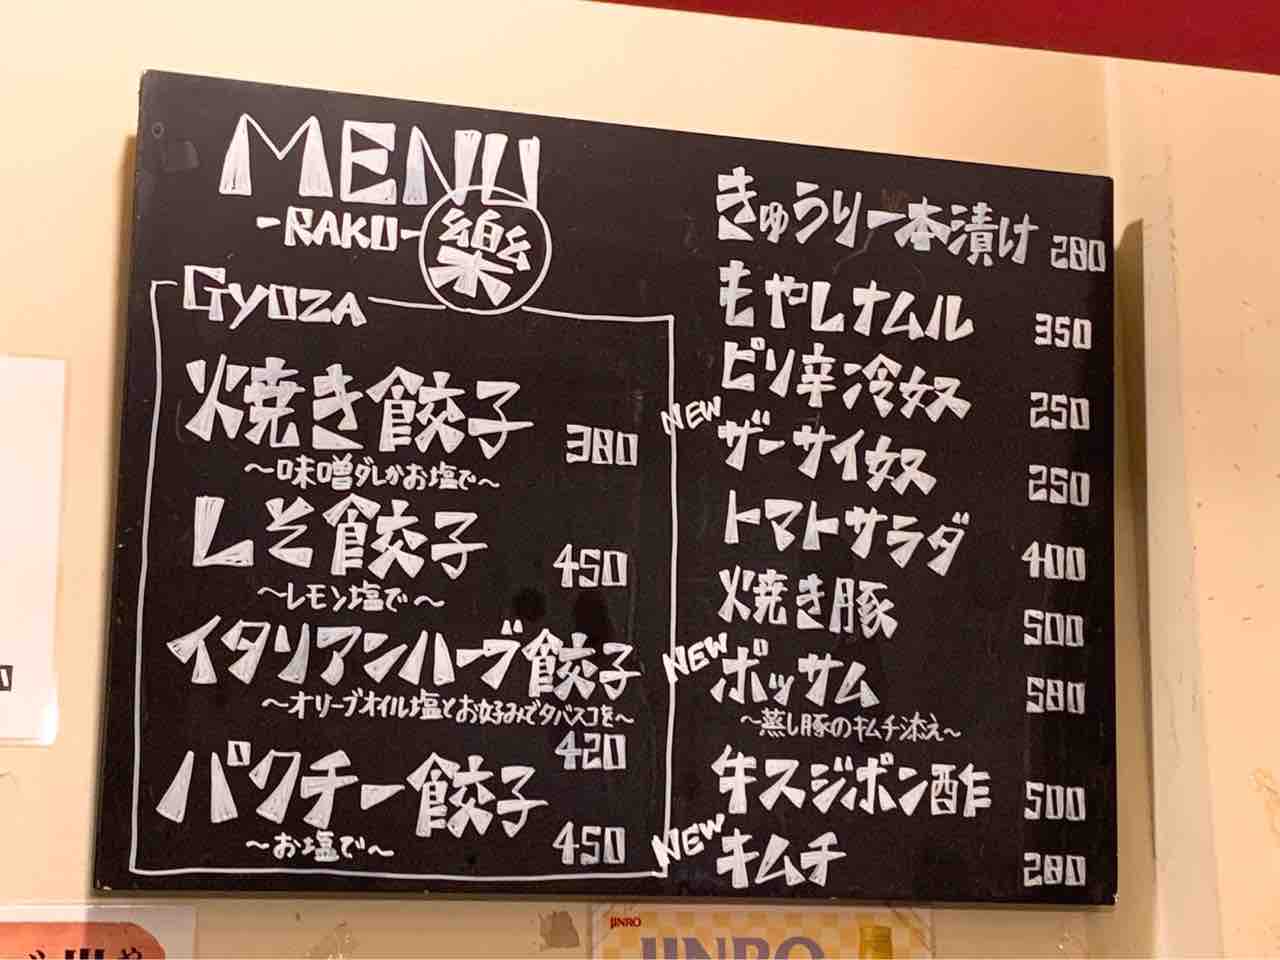 MENU
-RAKU- 樂
GYOZA
焼き餃子 380
～味噌ダレかお塩で～
しそ餃子 450
～レモン塩で～
イタリアンハーブ餃子
～オリーブオイル塩とお好みでタバスコを～
420
パクチー餃子 450
～お塩で～
きゅうり一本漬け 280
もやしナムル 350
ピリ辛冷奴 250
NEW ザーサイ奴 250
トマトサラダ 400
焼き豚 500
NEW ポッサム 580
～蒸し豚のキムチ添え～
牛スジポン酢 500
NEW キムチ 280
JINRO
JINRO